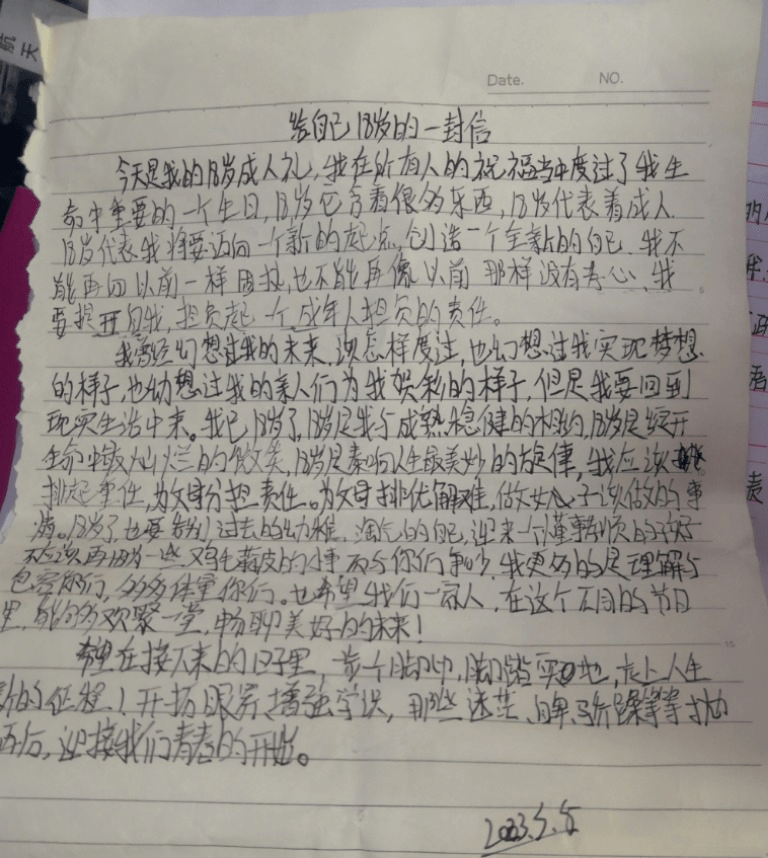 航
天
Date. NO.
给自己18岁的一封信
今天是我的18岁成人礼,我在所有人的祝福当中度过了我生
命中重要的一个生日,18岁包含着很多东西,18岁代表着成人
18岁代表我将要迈向一个新的起点,创造一个全新的自己.我不
能再回以前一样,也不能再像以前那样没有专心、我
要提升自我,担负起一个成年人担负的责任。
我曾经幻想过我的未来,该怎样度过,也幻想过我实现梦想
的样子,也幼想过我的亲人们为我贺彩的样子,但是我要回到
现实生活中来。我已18岁了,18岁是我与成熟稳健的相约,18岁是绽开
生命中最灿烂的微笑,18岁是奏响人生最美妙的旋律,我应该
担起责任,为父母分担责任。为父母排忧解难,做女儿子该做的事
情。18岁了也要告别过去的幼稚、淘气的自己,迎来一个懂事孝顺的
不应该再因为一些鸡毛蒜皮的小事而与你们争吵,我更多的是理解与
包容你们,多多体重你们。也希望我们一家人,在这个不同的节日
里,能够多欢聚一堂,畅聊美好的未来!
希望在接下来的日子里,一步一个脚印,脚踏实地,走上人生
新的征程!开拓眼界,增强学识,那些迷茫、自卑、骄躁等等抛
后,迎接我们青春的开始。
2023.5.5